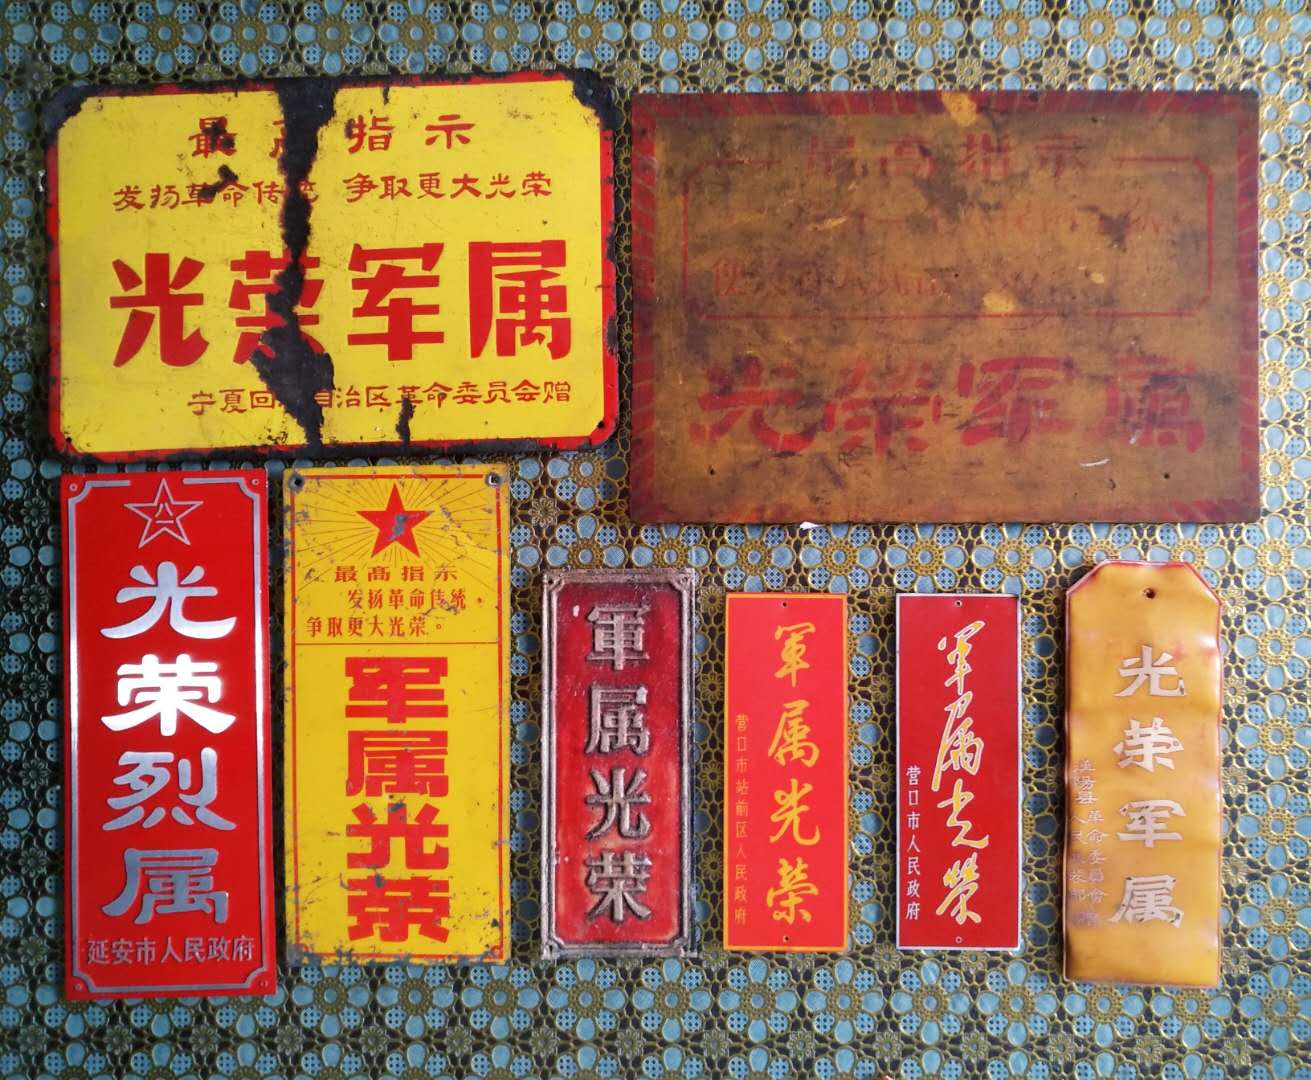 最高指示
发扬革命传统 争取更大光荣
光荣军属
宁夏回族自治区革命委员会赠
最高指示
光榮軍屬
八一
光荣烈属
延安市人民政府
最高指示
发扬革命传統，
争取更大光荣。
军属光荣
軍属光荣
軍属光荣
营口市站前区人民政府
军属光荣
营口市人民政府
光荣军属
县革命委員会